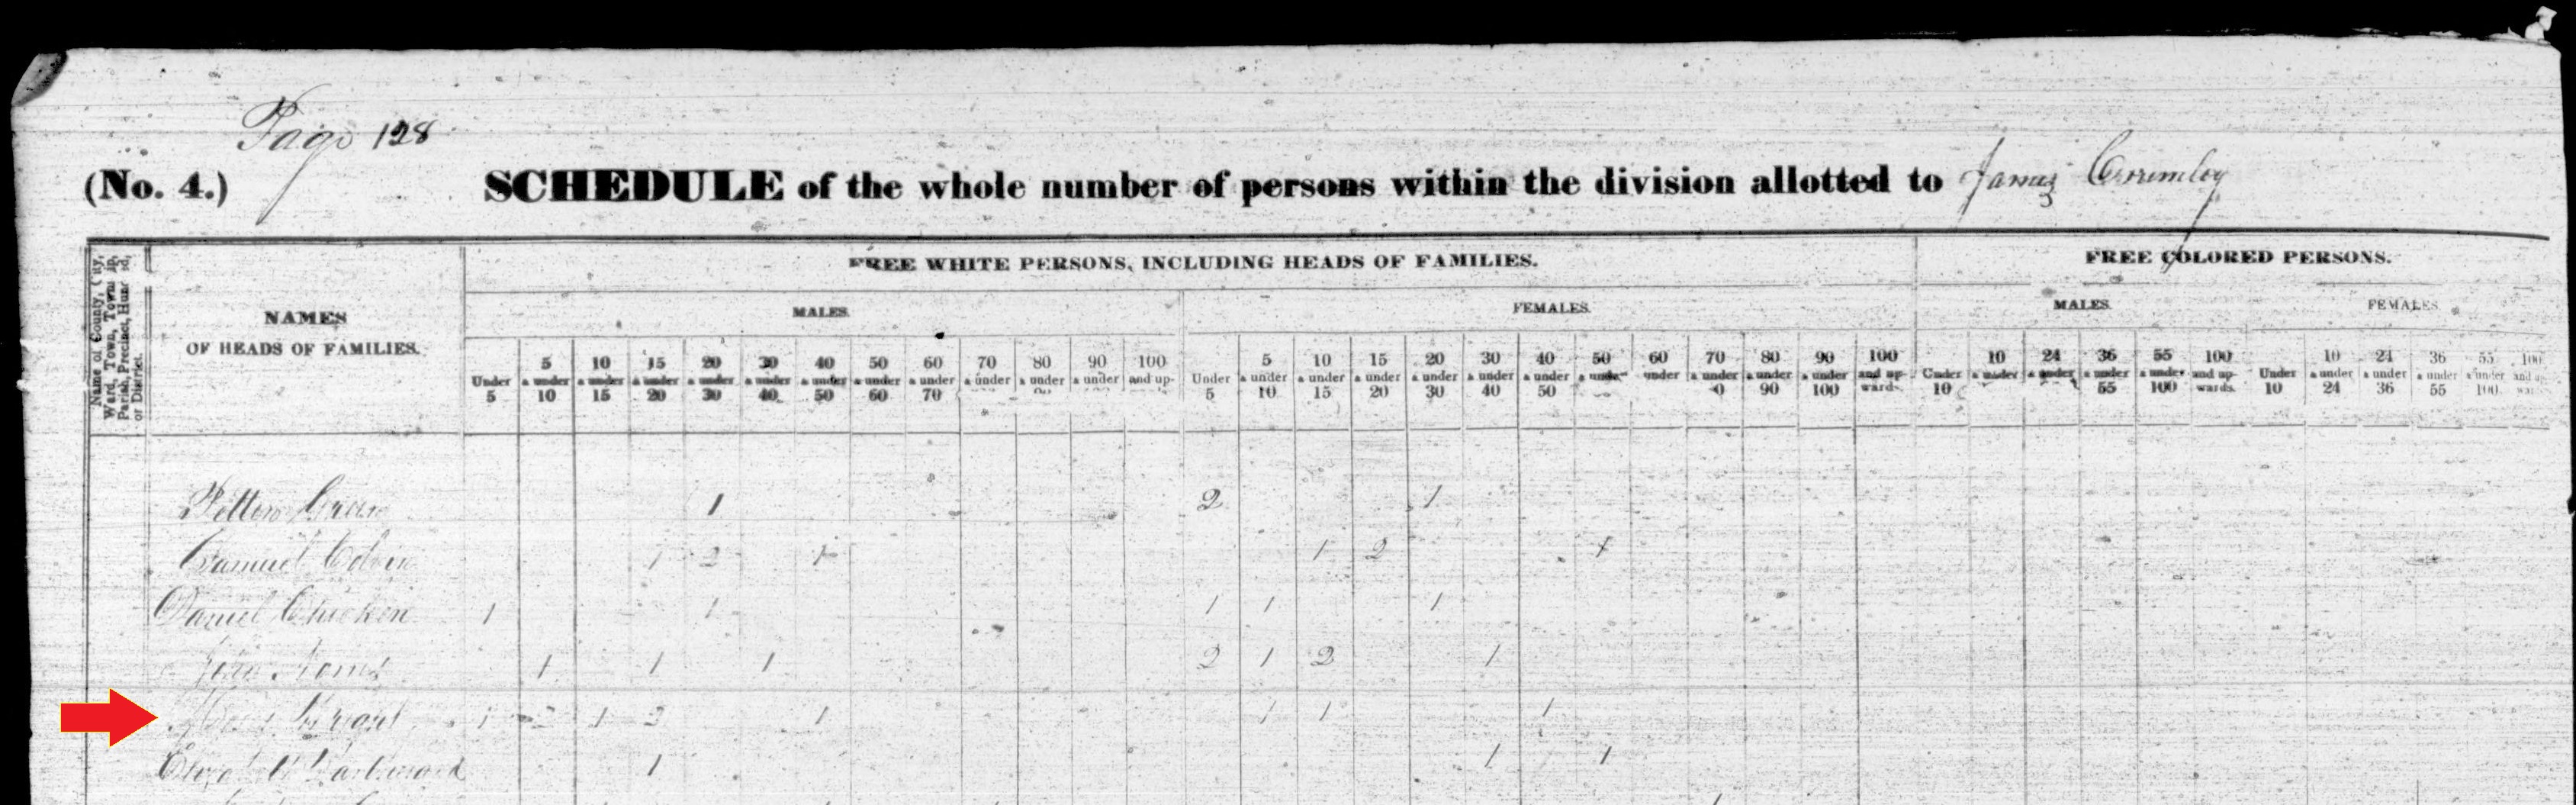 Page 128
(No. 4.) SCHEDULE of the whole number of persons within the division allotted to James Crumley
Name of County, City, Ward, Town, Township, Parish, Precinct, Hundred, or District.
NAMES
OF HEADS OF FAMILIES.
FREE WHITE PERSONS, INCLUDING HEADS OF FAMILIES.
FREE COLORED PERSONS.
MALES.
FEMALES.
MALES.
FEMALES.
5 10 15 20 30 40 50 60 70 80 90 100 5 10 15 20 30 40 50 60 70 80 90 100 10 24 36 55 100 10 24 36 55 100
Under & under & under & under & under & under & under & under & under & under & under & under and up- Under & under & under & under & under & under & under & under under & under & under & under and up Under & under & under & under & under and up- Under & under & under & under & under and up
5 10 15 20 30 40 50 60 70 5 10 15 20 30 40 50 0 90 100 wards 10 55 100 wards. 10 24 36 55 100 wards
Green 1 2 1
Samuel Colvin 1 2 1 1 2 1
Daniel Chicken 1 1 1 1 1
John 1 1 1 2 1 2 1
Bryant 1 2 1 2 1 1 1 1
Elizabeth 1 1 1